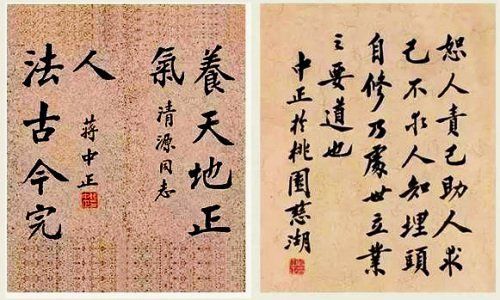 養天地正
氣
清源同志
法古今完
人
蔣中正
恕人責己助人求
己不求人知埋頭
自修乃處世立業
之要道也
中正於桃園慈湖